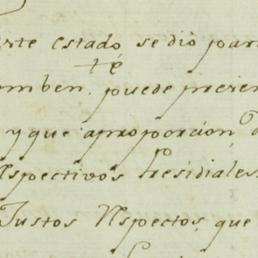 arte estado se dió par
te
mben. puede preser
y que aproporcion, d
espectivos Presidiales
Justos Respectos, que